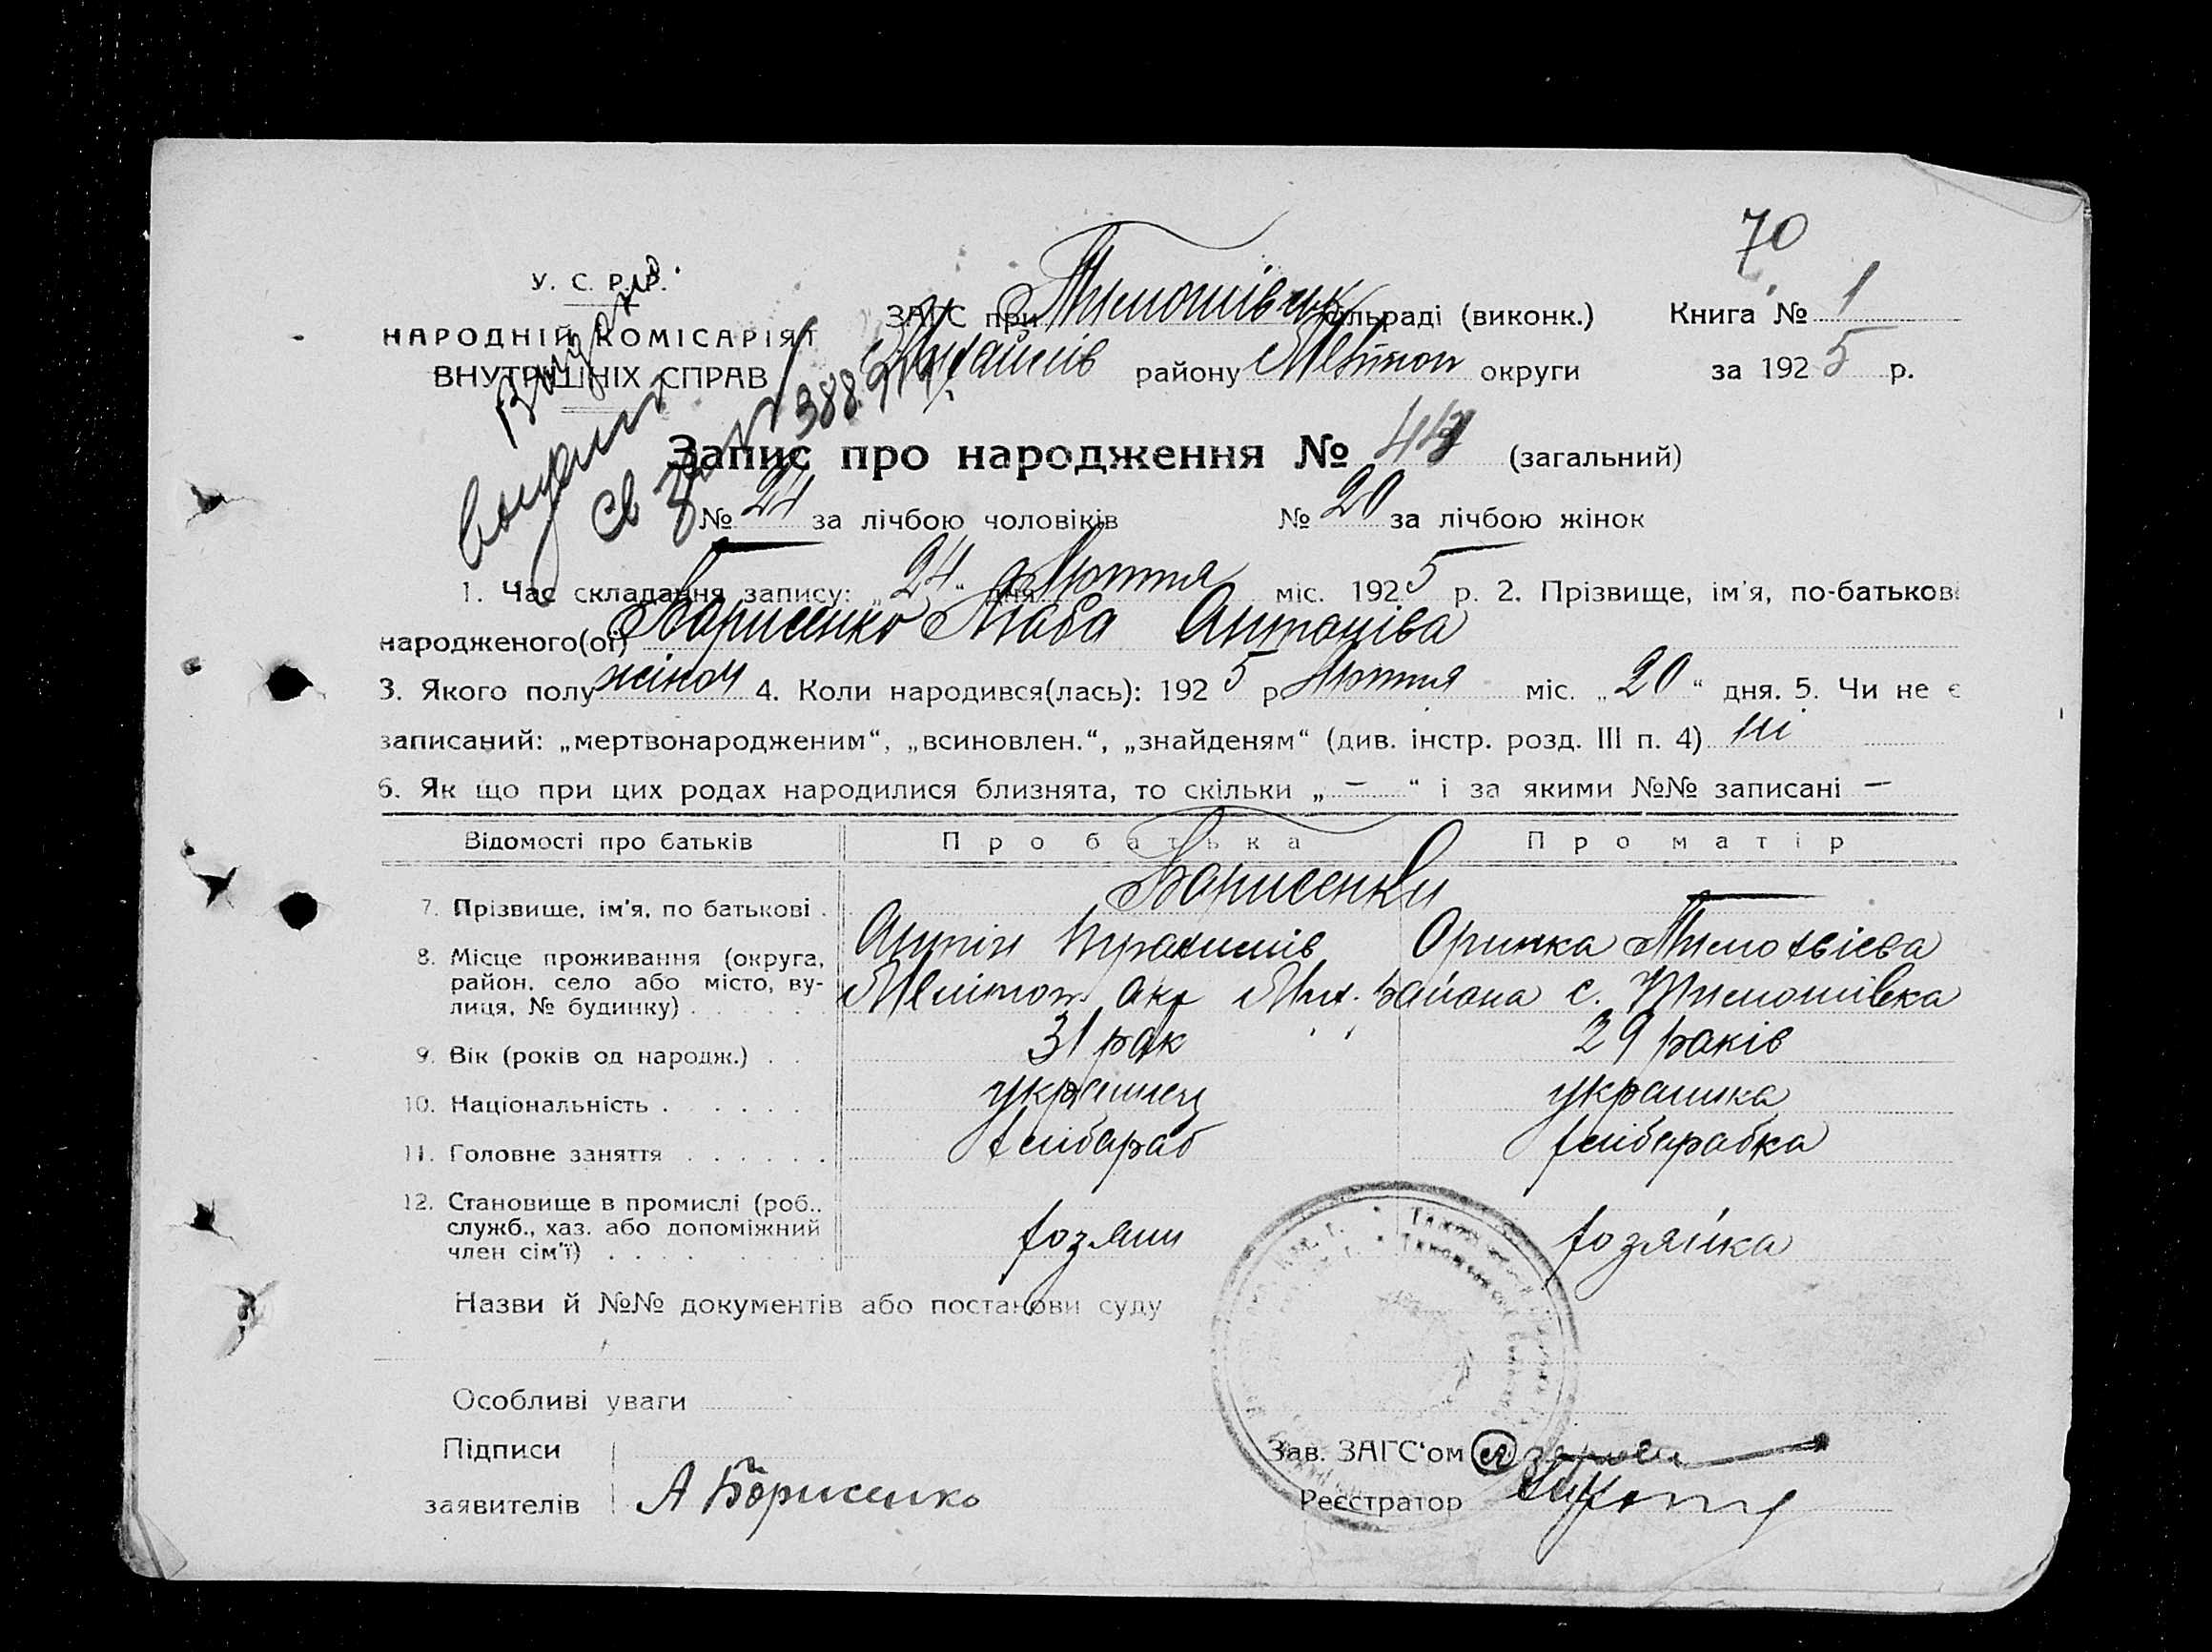 70
У. С. Р. Р.
НАРОДНІЙ КОМІСАРІЯТ
ВНУТРІШНІХ СПРАВ
ЗАГС при Тимошівськ сільраді (виконк.) Книга № 1
Михайлів району Меліtoп округи за 1925 р.
Запис про народження № 44 (загальний)
№ 24 за лічбою чоловіків № 20 за лічбою жінок
1. Час складання запису: „24“ дня Лютня міс. 1925 р. 2. Прізвище, ім'я, по-батькові
народженого(ої) Барисенко Антонівa
3. Якого полу жіноч 4. Коли народився(лась): 1925 р Лютня міс. „20“ дня. 5. Чи не є
записаний: „мертвонародженим“, „всиновлен.“, „знайденям“ (див. інстр. розд. III п. 4) ні
6. Як що при цих родах народилися близнята, то скільки „ — “ і за якими №№ записані —
Відомості про батьків Про батька Про матір
7. Прізвище, ім'я, по батькові . Барисенки
Антін Трахимів Оринка Тимохвієва
8. Місце проживання (округа, район, село або місто, вулиця, № будинку) Меліtoп окр Мих. района с. Тимошівка
9. Вік (років од народж.) . . 31 рок 29 раків
10. Національність . . . . . . українец украинка
11. Головне заняття . . . . . . хлібараб хлібарабка
12. Становище в промислі (роб.. служб., хаз. або допоміжний член сім'ї) хозяин хозяйка
Назви й №№ документів або постанови суду
Особливі уваги
Підписи
заявителів А Борисенко
Зав. ЗАГС'ом
Реєстратор